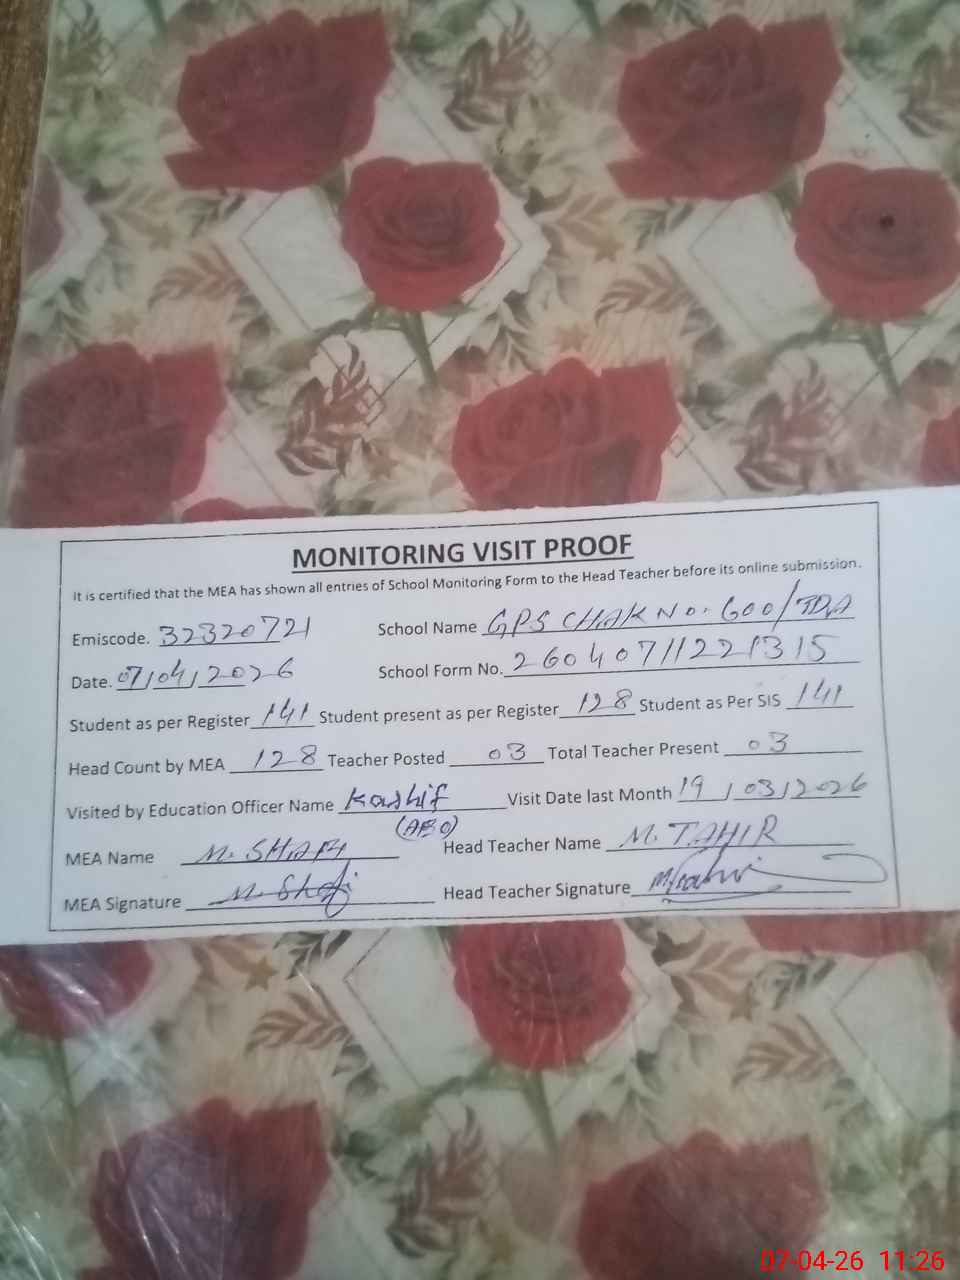 MONITORING VISIT PROOF
It is certified that the MEA has shown all entries of School Monitoring Form to the Head Teacher before its online submission.
Emiscode. 32320721 School Name GPS CHAK No. 600/TDA
Date. 07/04/2026 School Form No. 26040711221315
Student as per Register 141 Student present as per Register 128 Student as Per SIS 141
Head Count by MEA 128 Teacher Posted 03 Total Teacher Present 03
Visited by Education Officer Name Kashif Visit Date last Month 19/03/2026
(AEO)
MEA Name M. SHAFI Head Teacher Name M. TAHIR
MEA Signature M. Shafi Head Teacher Signature
07-04-26 11:26